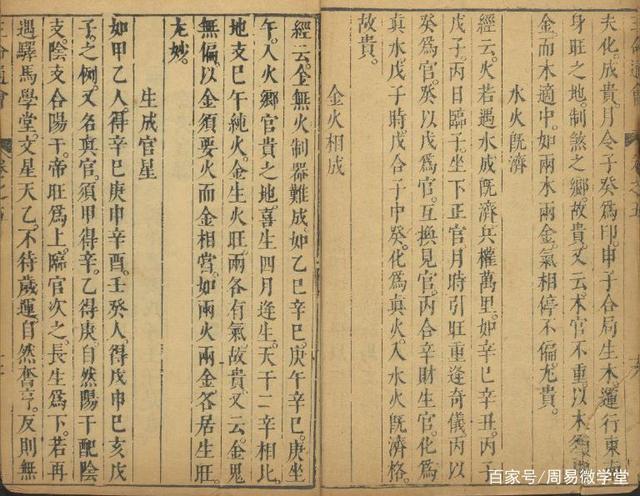 夫化成貴月令子癸爲印申子合局生木運行東
身旺之地制煞之鄉故貴又云木官不重以木
金而木適中如兩木兩金氣相停不偏尤貴
水火旣濟
經云火若遇水成旣濟兵權萬里如辛巳辛丑丙子
戊子丙日臨子坐下正官月時引旺重逢奇儀丙以
癸爲官癸以戊爲官互換見官丙合辛財生官化爲
眞水戊子時戊合子中癸化爲眞火入水火旣濟格
故貴
金火相成
經云金無火制器難成如乙巳辛巳庚午辛巳庚坐
午入火鄉官貴之地喜生四月逢生天干二辛相比
地支巳午純火金生火旺兩各有氣故貴又云金鬼
無偏以金須要火而金相當如兩火兩金各居生旺
尤妙
生成官星
如甲乙人得辛巳庚申辛酉壬癸人得戊申巳亥戊
子之例又名眞官須甲得辛乙得庚自然陽干配陰
支陰支合陽干帝旺爲上臨官次之長生爲下若再
遇驛馬學堂文星天乙不待歲運自然奮亨反則無
三命通會
百家号/周易微学堂